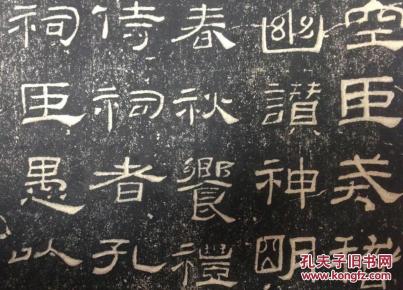 空臣戒稽
幽讚神明
春秋饗禮
侍祠者孔
祠臣愚以
孔夫子旧书网